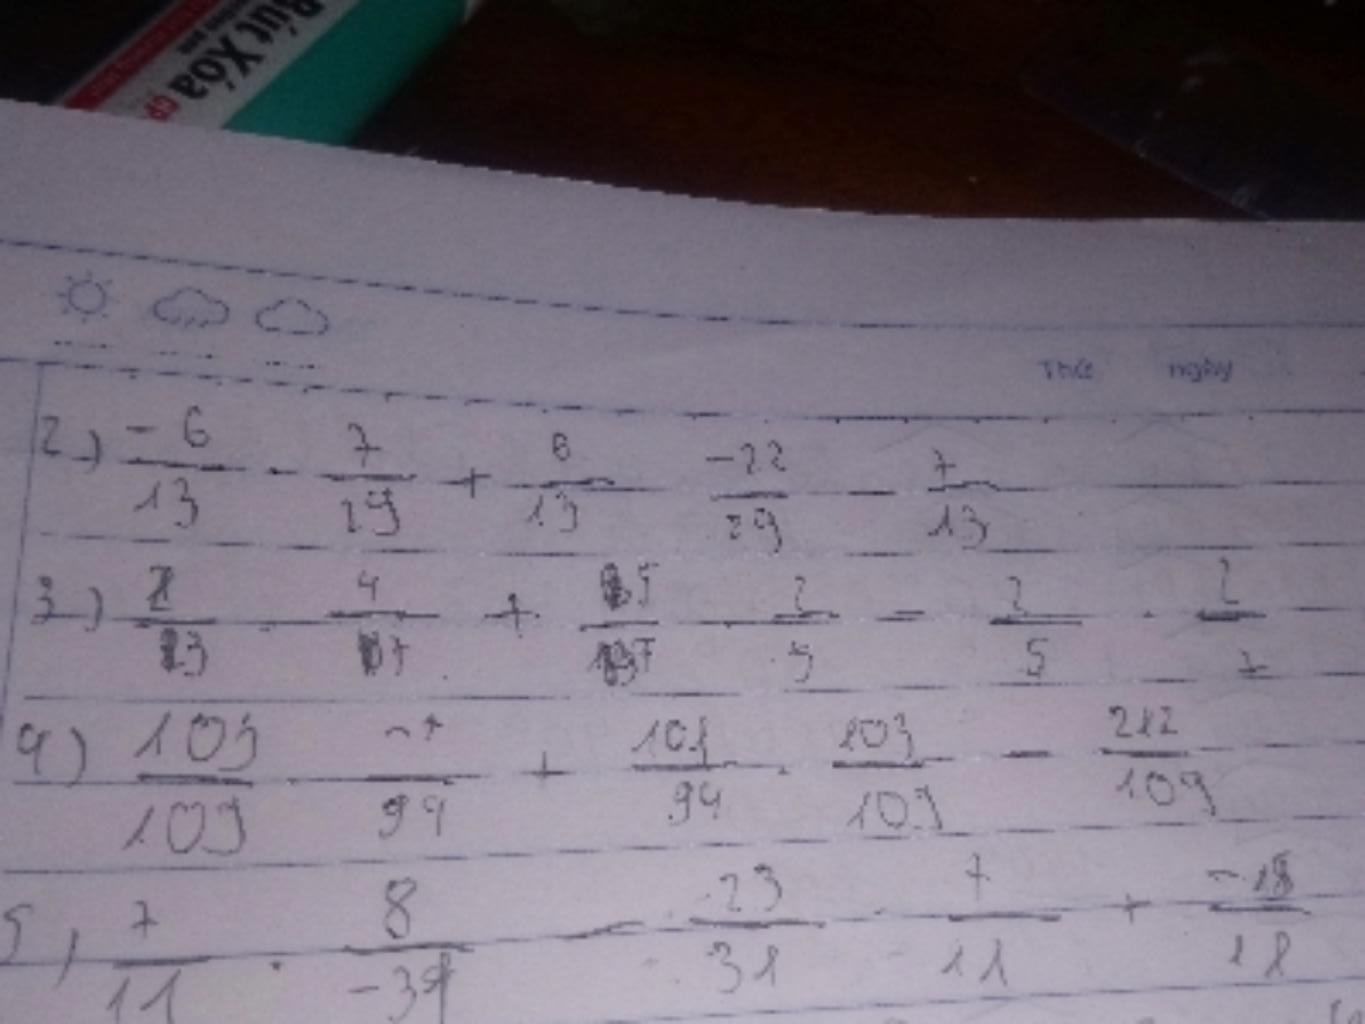 Bút Xóa CP
Thứ ngày
2) -6/13 · 7/29 + 6/13 -22/29 - 7/13
3) 2/3 · 4/7 + 5/7 · 2/5 - 2/5 · 2/7
4) 103/109 · /94 + 101/94 · 103/109 - 212/109
5, 7/11 · 8/-31 - 23/31 · 7/11 + -18/18